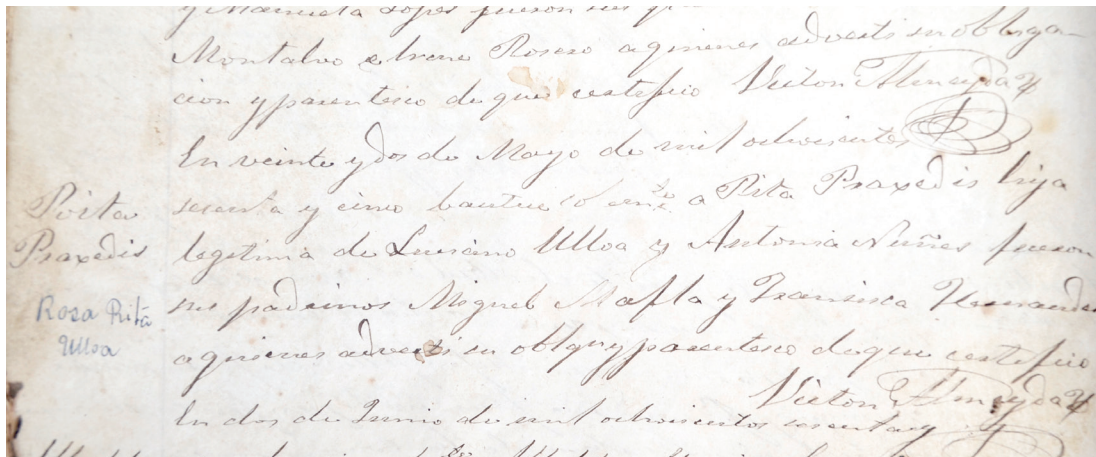 y Manuela Lopes fueron sus
Montalvo e Irene Rosero a quienes adverti su obliga-
cion y parentesco de que certefico Victon Almeyda
En veinte y dos de Mayo de mil ochosientos
Rita
Praxedis
sesenta y cinco bautice so cond.e a Rita Praxedis hija
legitima de Lusiano Ulloa y Antonia Nuñes fueron
Rosa Rita
Ulloa
sus padrinos Miguel Mafla y Fransisca Hernandes
a quienes adverti su oblg.n y parentesco de que certefico
Victon Almeyda
En dos de Junio de mil ochosientos sesenta y